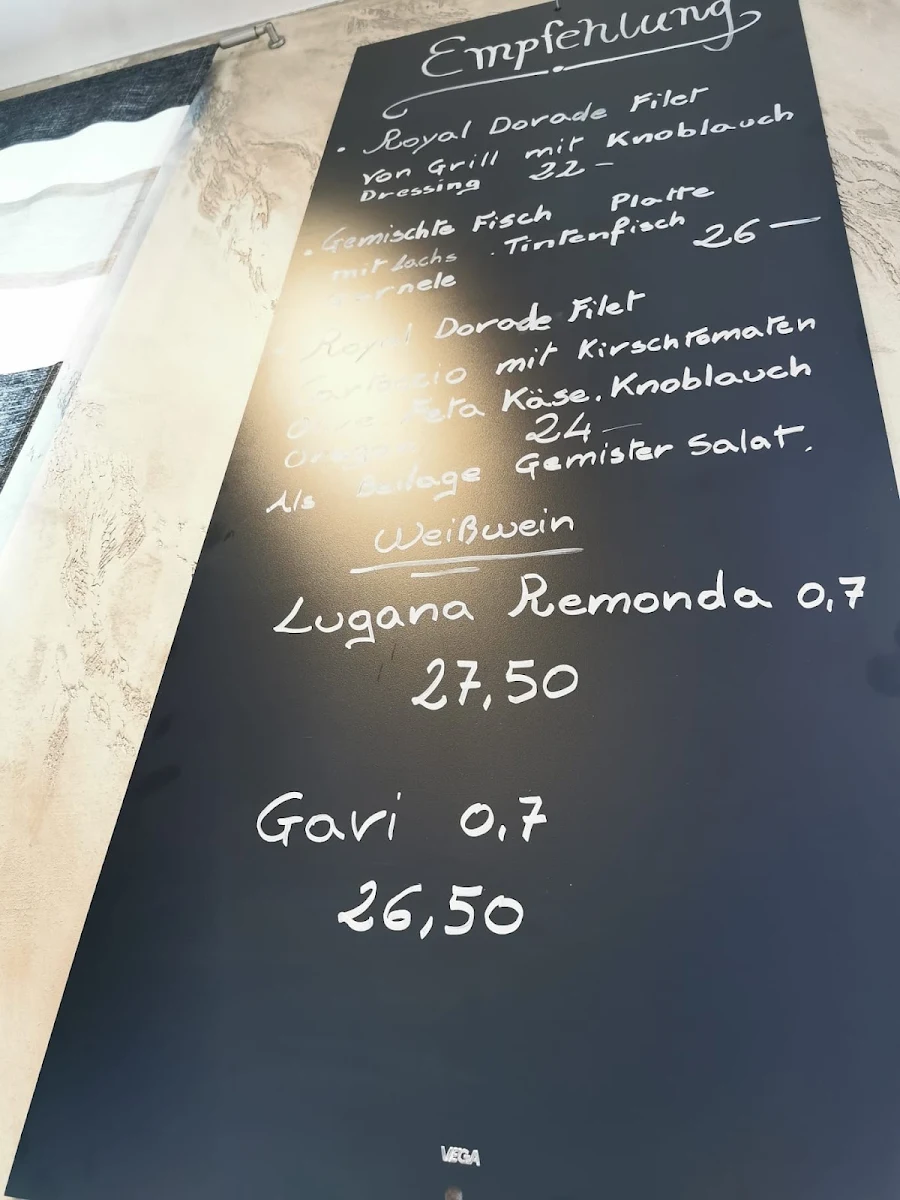 Empfehlung
• Royal Dorade Filet
von Grill mit Knoblauch
Dressing 22-
• Gemischte Fisch Platte
mit Lachs . Tintenfisch 26-
Garnele
Royal Dorade Filet
Cartoccio mit Kirschtomaten
Feta Käse. Knoblauch
Oregano 24-
Als Beilage Gemister Salat.
Weißwein
Lugana Remonda 0,7
27,50
Gavi 0,7
26,50
VEGA